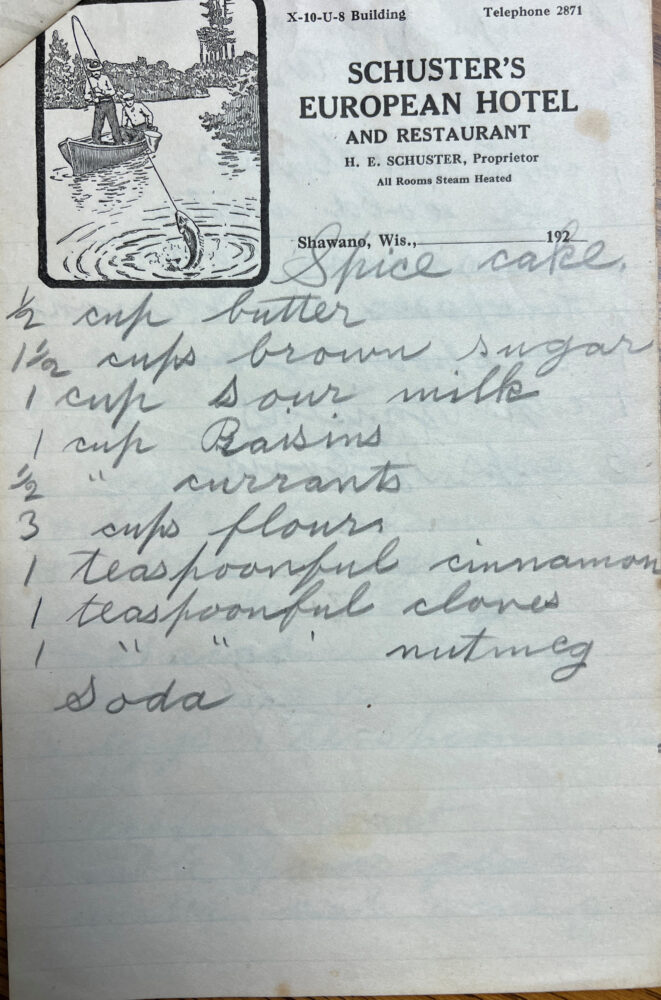 X-10-U-8 Building Telephone 2871
SCHUSTER'S
EUROPEAN HOTEL
AND RESTAURANT
H. E. SCHUSTER, Proprietor
All Rooms Steam Heated
Shawano, Wis., 192
Spice cake.
½ cup butter
1½ cups brown sugar
1 cup sour milk
1 cup Raisins
½ " currants
3 cups flour
1 teaspoonful cinnamon
1 teaspoonful cloves
1 " " nutmeg
Soda